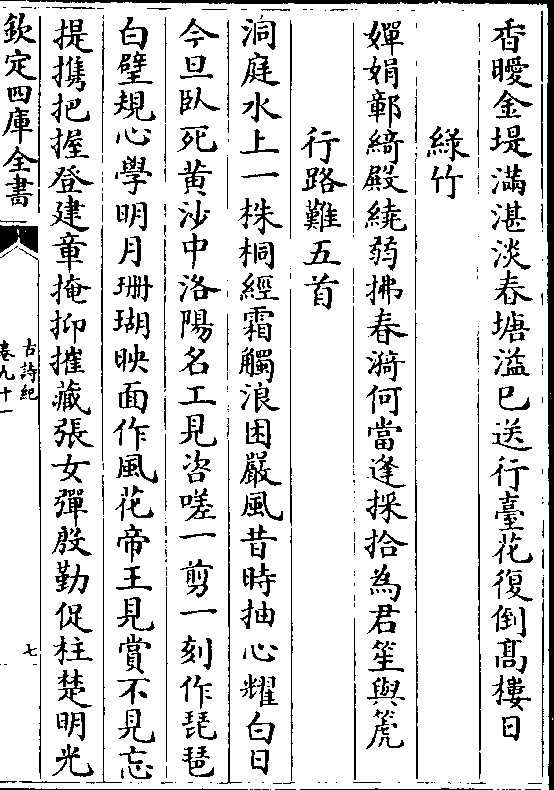 香曖金堤滿湛淡春塘溢已送行臺花復倒高樓日
綠竹
嬋娟鄣綺殿繞弱拂春漪何當逢採拾為君笙與箎
行路難五首
洞庭水上一株桐經霜觸浪困嚴風昔時抽心耀白日
今旦臥死黃沙中洛陽名工見咨嗟一剪一刻作琵琶
白璧規心學明月珊瑚映面作風花帝王見賞不見忘
提攜把握登建章掩抑摧藏張女彈殷勤促柱楚明光
欽定四庫全書
古詩紀
卷九十一
七